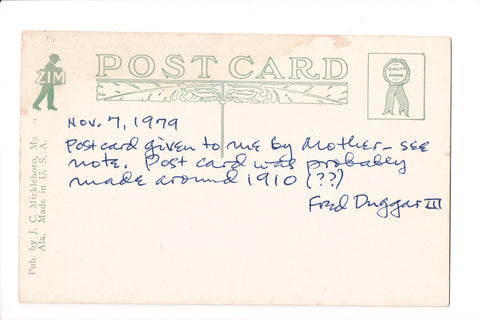 ZIM
POST CARD
QUALITY
Nov. 7, 1979
Postcard given to me by Mother - see
note. Post card was probably
made around 1910 (??)
Fred Duggar III
Pub. by J. C. Mickleboro,
Ala. Made in U. S. A.